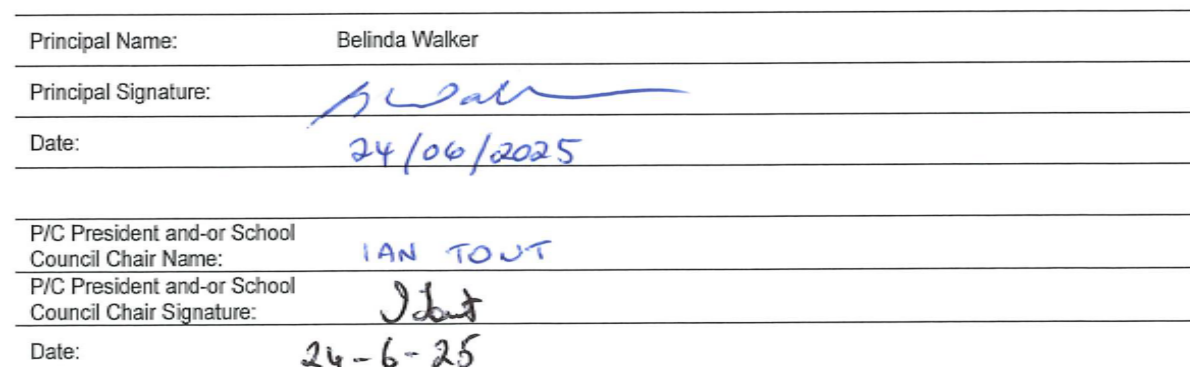 Principal Name: Belinda Walker
Principal Signature: B Walker
Date: 24/06/2025
P/C President and-or School
Council Chair Name: IAN TOUT
P/C President and-or School
Council Chair Signature: I Tout
Date: 24-6-25